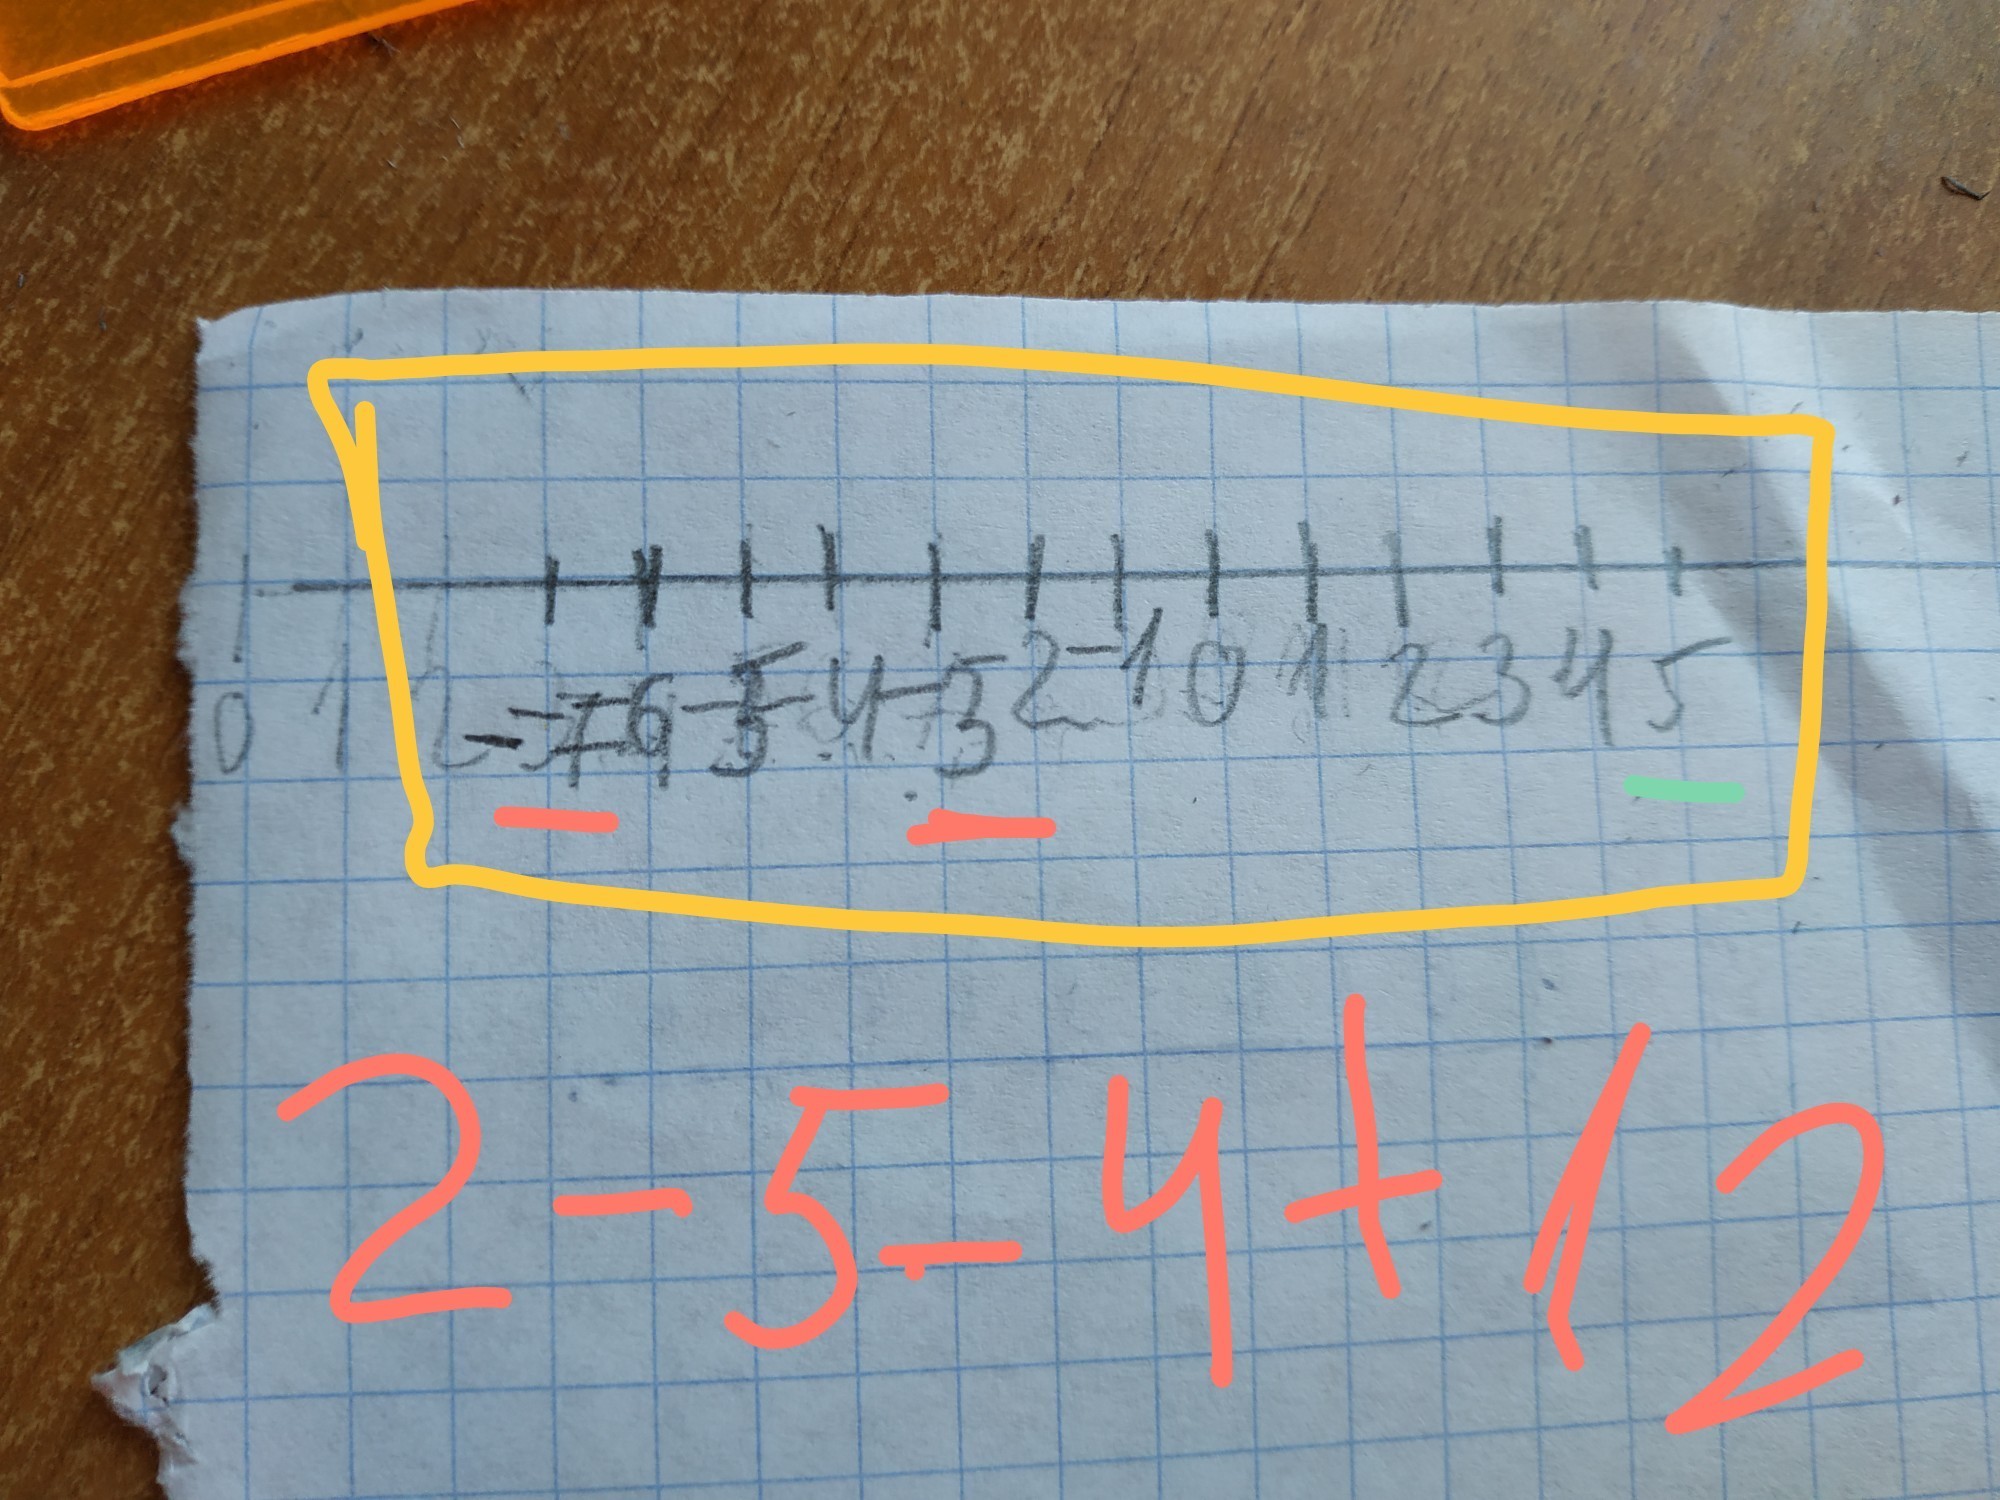 0 1 2 -7 -6 -5 -4 -3 2 -1 0 1 2 3 4 5
2-5-4+12